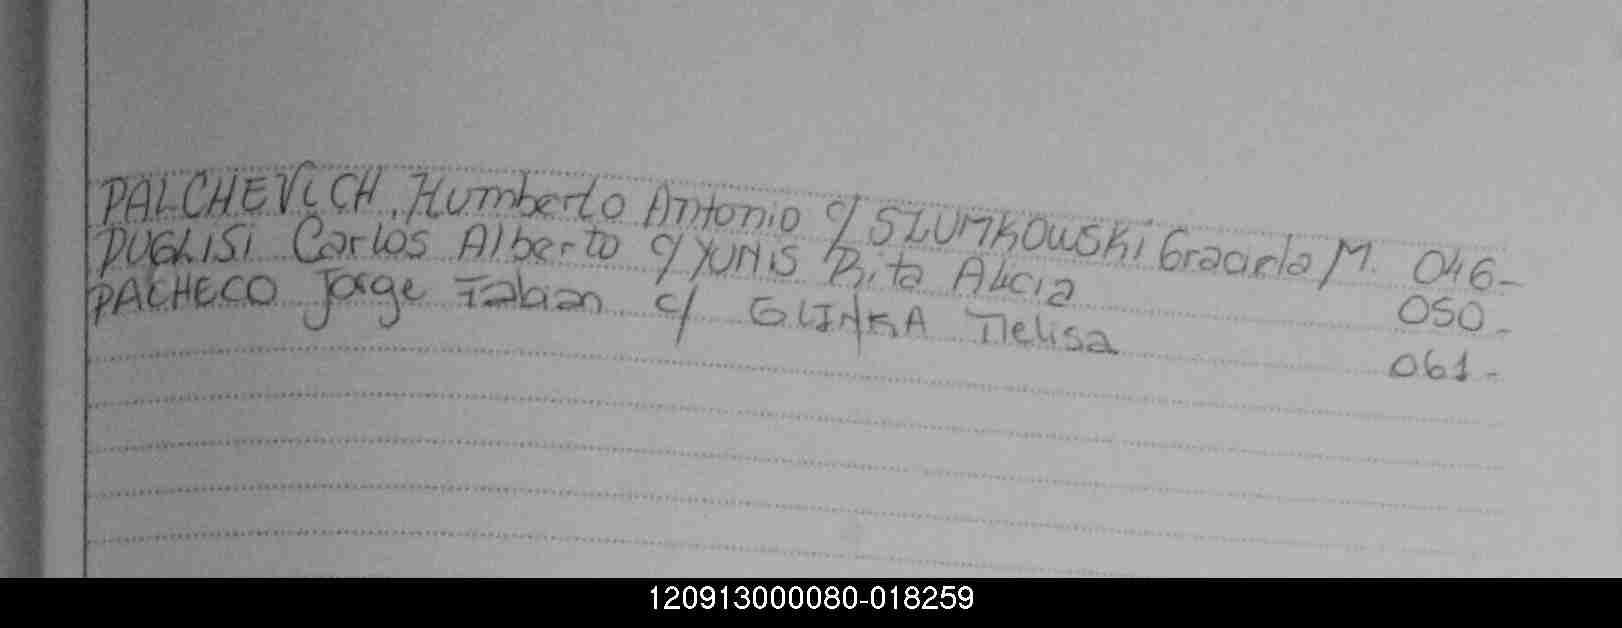 PALCHEVICH, Humberto Antonio c/ SZUMKOWSKI Graciela M. 046-
PUGLISI Carlos Alberto c/ YUNIS Rita Alicia 050-
PACHECO Jorge Fabian c/ GLINKA Melisa 061-
120913000080-018259